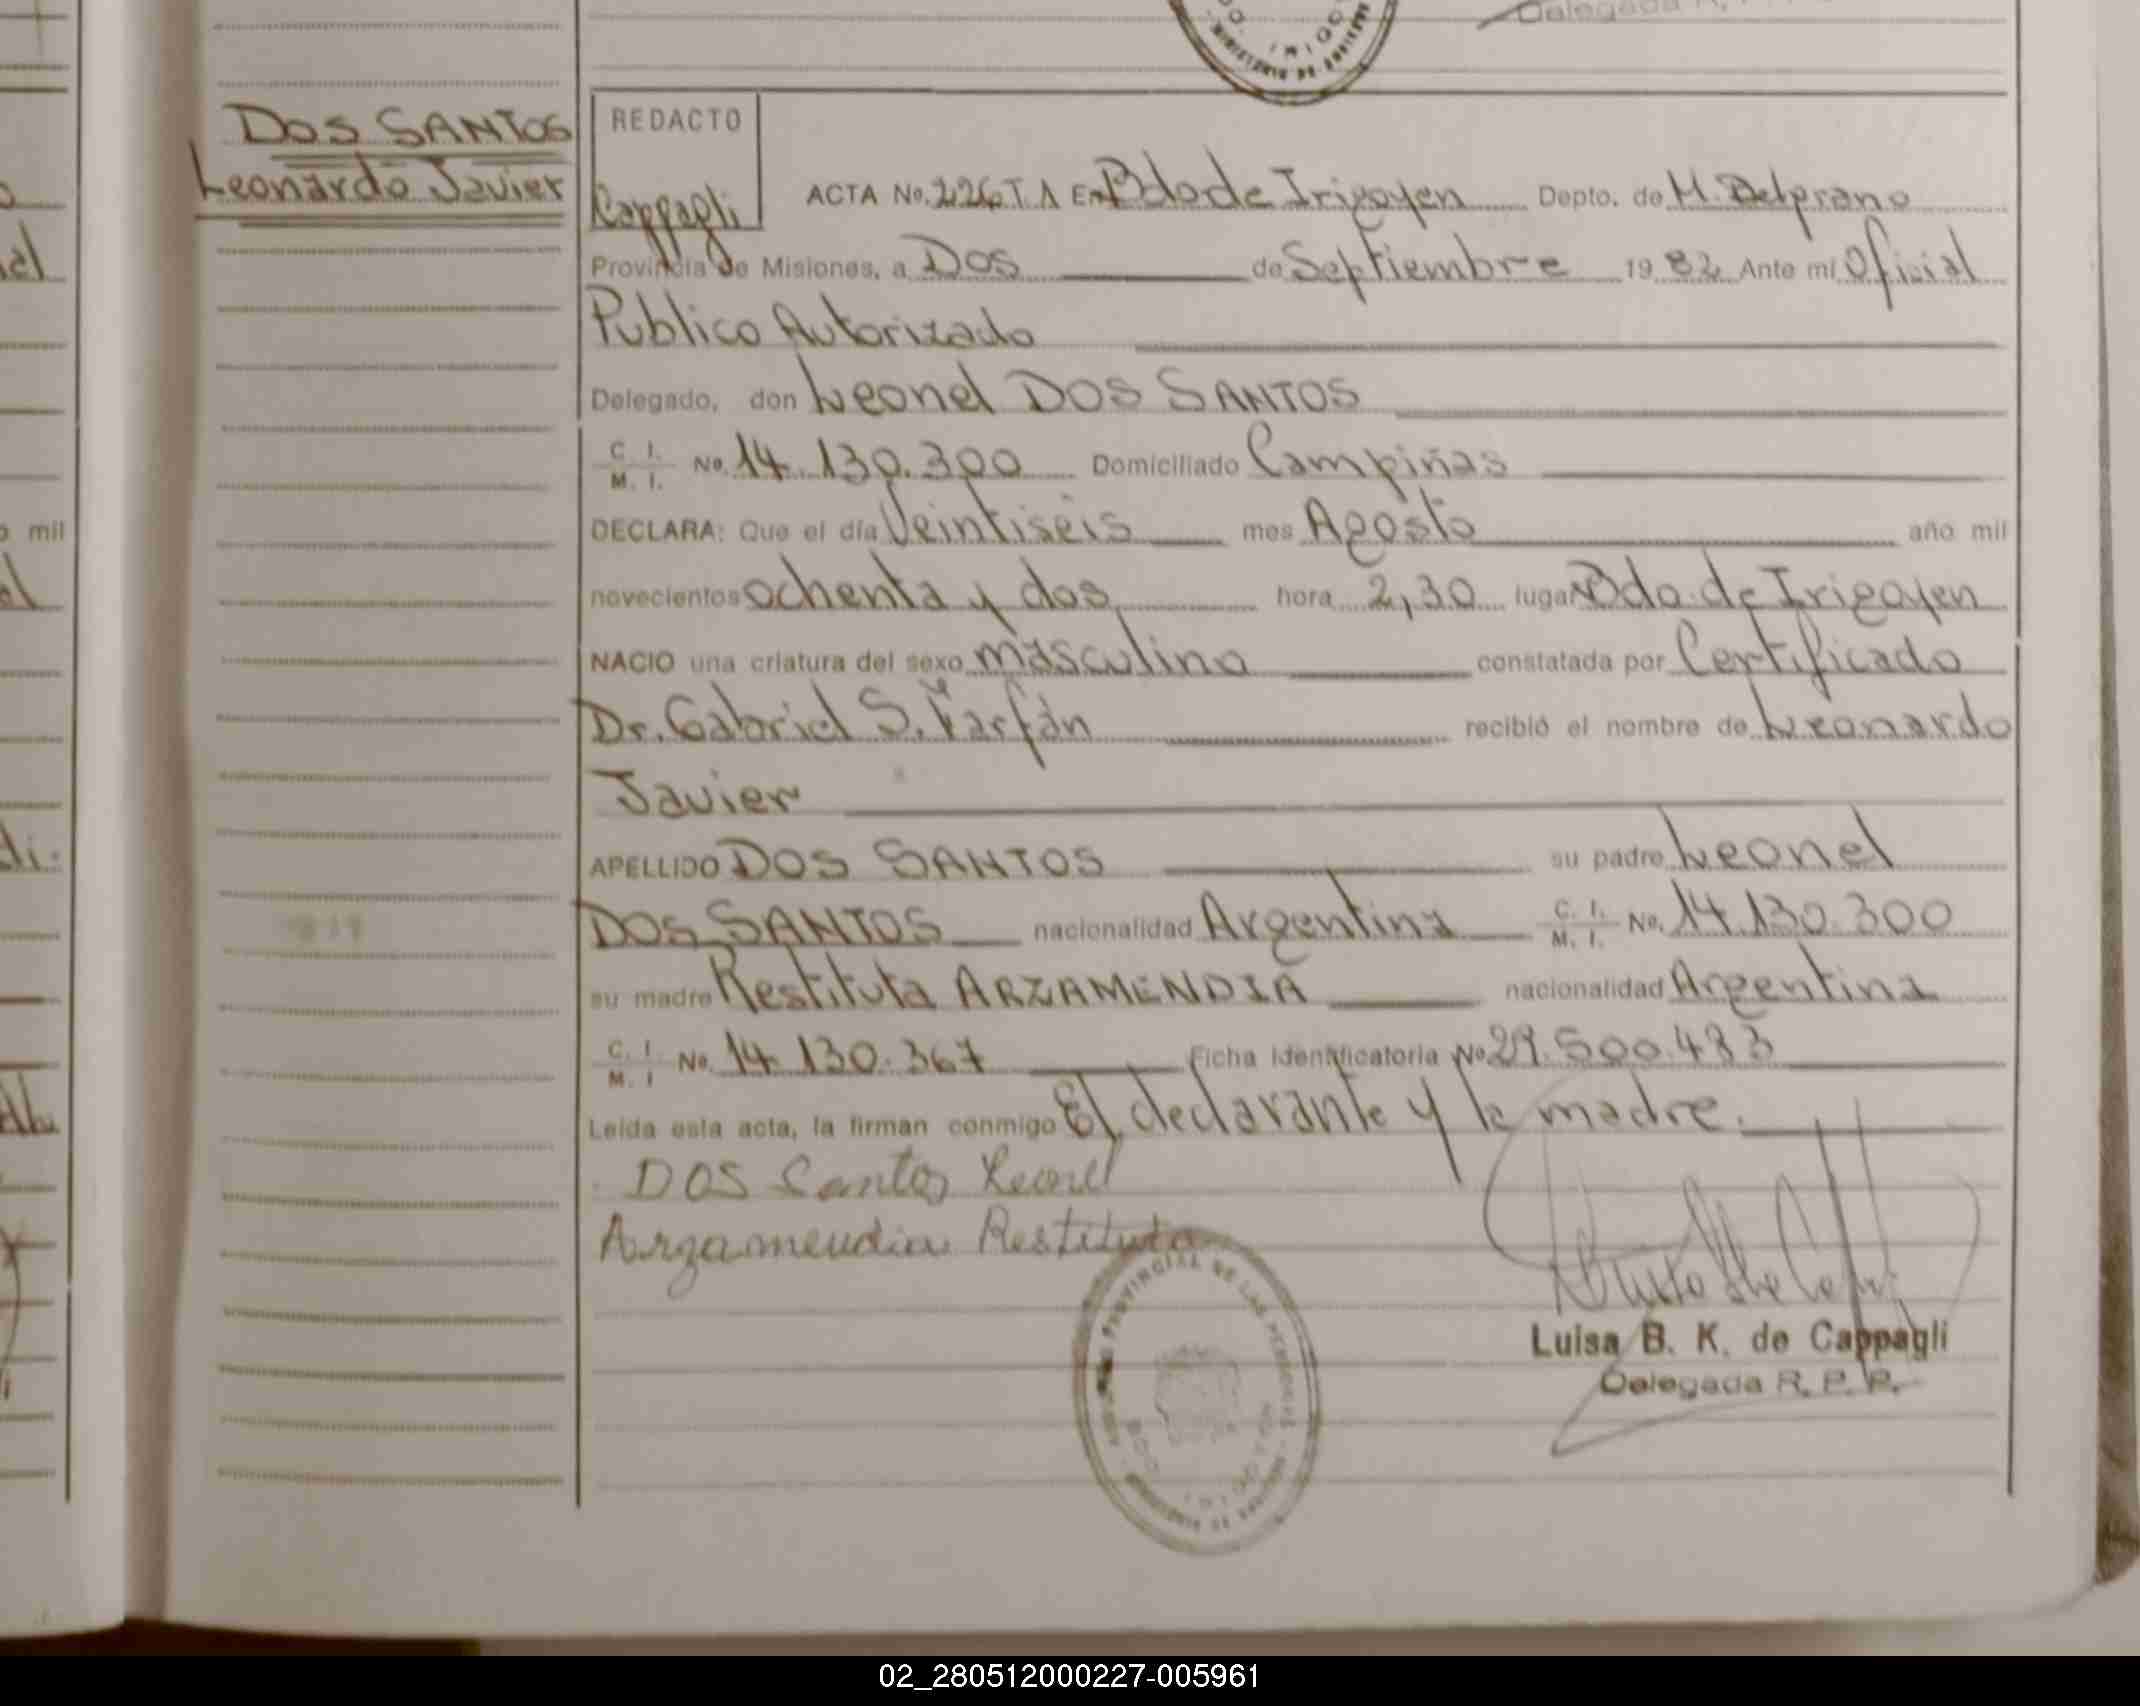 Delegada R.
MINISTERIO DE
DOS SANTOS
Leonardo Javier
REDACTO
Cappagli
ACTA No. 226 T. 1 En Bdo de Irigoyen Depto. de M. Belgrano
Provincia de Misiones, a Dos de Septiembre 19 82 Ante mí Oficial
Publico Autorizado
Delegado, don Leonel DOS SANTOS
C. I.
M. I. No. 14.130.300 Domiciliado Campiñas
DECLARA: Que el día Veintiseis mes Agosto año mil
novecientos ochenta y dos hora 2,30 lugar Bdo. de Irigoyen
NACIO una criatura del sexo masculino constatada por Certificado
Dr. Gabriel S. Farfán recibió el nombre de Leonardo
Javier
APELLIDO DOS SANTOS su padre Leonel
DOS SANTOS nacionalidad Argentina C. I. M. I. No. 14.130.300
su madre Restituta ARZAMENDIA nacionalidad Argentina
C. I.
M. I No. 14.130.367 Ficha identificatoria No 29.500.483
Leída esta acta, la firman conmigo El declarante y la madre.
DOS Santos Leonel
Arzamendia Restituta
PROVINCIAL DE LAS PERSONAS
Luisa B. K. de Cappagli
Delegada R. P. P.
o mil
02_280512000227-005961